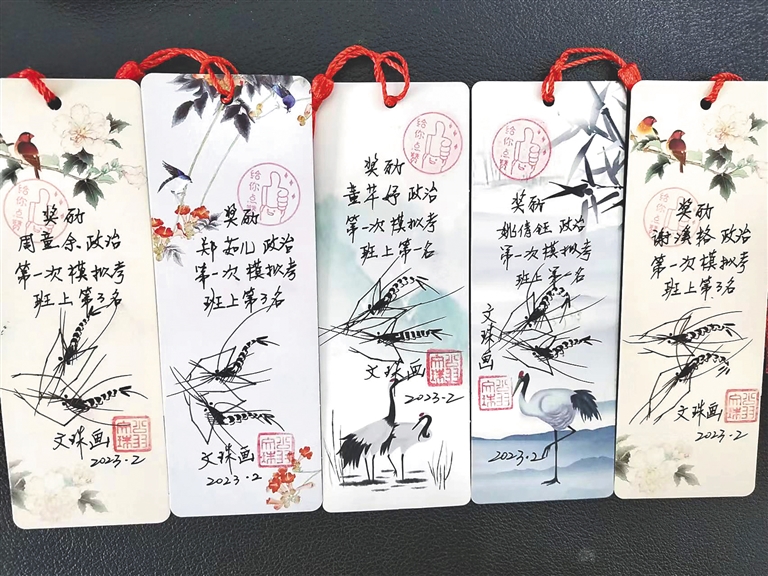 给你点赞
奖励
政治
第一次模拟考
班上第3名
文珠画
2023.2
给你点赞
奖励
政治
第一次模拟考
班上第3名
文珠画
2023.2
给你点赞
奖励
童芊妤 政治
第一次模拟考
班上第一名
文珠画
2023.2
给你点赞
奖励
姚倩钰 政治
第一次模拟考
班上第一名
文珠画
2023.2
给你点赞
奖励
政治
第一次模拟考
班上第3名
文珠画
2023.2